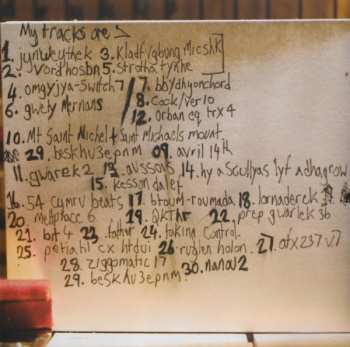 My tracks are
1. jynweythek 3. Kladfvgbung Micshk
2. Vordhosbn 5. Strotha tynhe
4. omgyjya-Switch7 7. bbydhyonchord
6. gwely Mernans 8. Cock/ver10
12. orban eq trx4
10. Mt Saint Michel + Saint Michaels mount
29. beskhu3epnm 09. avril 14th
11. gwarek 2 13. aussois 14. hy a Scullyas lyf adhagrow
15. kesson dalef
16. 54 cymru beats 17. btoum-roumada 18. lornaderek
20 Meltphace 6 19. QKThr 22. prep gwarlek 3b
21. bit 4 23. father 24. taking Control.
25. petiatil cx htdui 26 ruglen holon. 27. afx237 v.7
28. ziggomatic 17 30. nanou2
29. beskhu3epnm.